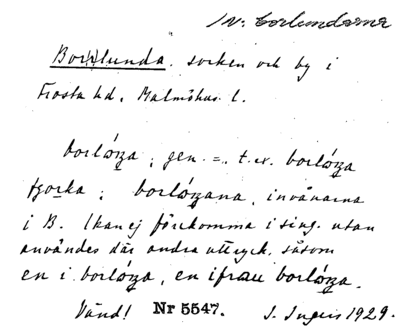 Iv: borlundarna
Borrlunda. socken och by i
Frosta hd, Malmöhus l.
borlóṉa, gen. =. t. ex. borlóṉa
ꞩorka; borlóṉana, invånarna
i B. Kan ej förekomma i sing. utan
användes där andra uttryck, såsom
en i borlóṉa, en ifrån borlóṉa.
Vänd! Nr 5547. J. Ingers 1929.